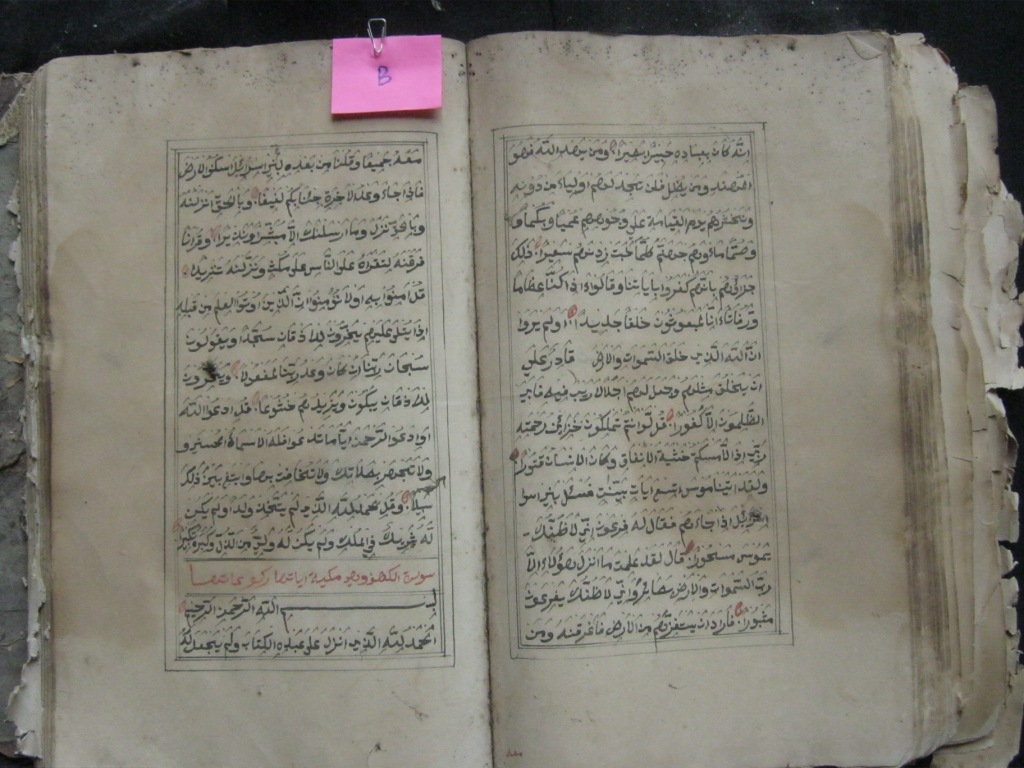 B
انه كان بعباده خبيرا بصيرا ومن يهد الله فهو
المهتد ومن يضلل فلن تجد لهم اولياء من دونه
ونحشرهم يوم القيامة على وجوههم عميا وبكما و
وصما ماويهم جهنم كلما خبت زدنهم سعيرا ذلك
جزاؤهم بانهم كفروا باياتنا وقالوا ءاذا كنا عظاما
ورفاتا ءانا لمبعوثون خلقا جديدا او لم يروا
ان الله الذي خلق السموات والارض قادر على
ان يخلق مثلهم وجعل لهم اجلا لا ريب فيه فابى
الظلمون الا كفورا قل لو انتم تملكون خزائن رحمة
ربي اذا لامسكتم خشية الانفاق وكان الانسان قتورا
ولقد اتينا موسى تسع ايات بينت فسئل بني اسرا
ئيل اذ جاءهم فقال له فرعون اني لاظنك
يموسى مسحورا قال لقد علمت ما انزل هؤلاء الا
رب السموات والارض بصائر واني لاظنك يفرعون
مثبورا فاراد ان يستفزهم من الارض فاغرقنه ومن
معه جميعا وقلنا من بعده لبني اسرائيل اسكنوا الارض
فاذا جاء وعد الاخرة جئنا بكم لفيفا وبالحق انزلنه
وبالحق نزل وما ارسلنك الا مبشرا ونذيرا وقرانا
فرقنه لتقراه على الناس على مكث ونزلنه تنزيلا
قل امنوا به او لا تؤمنوا ان الذين اوتوا العلم من قبله
اذا يتلى عليهم يخرون للاذقان سجدا ويقولون
سبحان ربنا ان كان وعد ربنا لمفعولا ويخرون
للاذقان يبكون ويزيدهم خشوعا قل ادعوا الله
او ادعوا الرحمن ايا ما تدعوا فله الاسماء الحسنى و
ولا تجهر بصلاتك ولا تخافت بها وابتغ بين ذلك
سبيلا وقل الحمد لله الذي لم يتخذ ولدا ولم يكن
له شريك في الملك ولم يكن له ولي من الذل وكبره تكبيرا
سورة الكهف وهو مكية
بسم الله الرحمن الرحيم
الحمد لله الذي انزل على عبده الكتاب ولم يجعل له